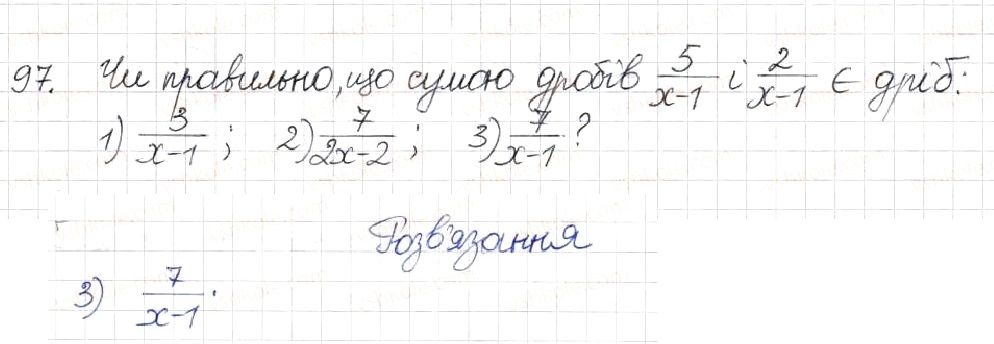 97. Чи правильно, що сумою дробів 5/(x-1) і 2/(x-1) є дріб:
1) 3/(x-1); 2) 7/(2x-2); 3) 7/(x-1)?
Розв'язання
3) 7/(x-1).